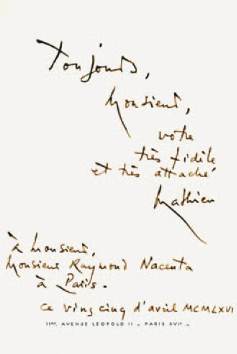 Toujours,
Monsieur,
votre
très fidèle
et très attaché
Mathieu
à Monsieur,
Monsieur Raymond Nacenta
à Paris.
ce vingt cinq d'avril MCMLXVI
AVENUE LÉOPOLD II - PARIS XVIe